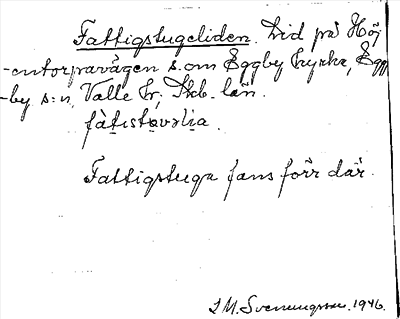 Fattigstugeliden. Lid på Höj
-entorpavägen s.om Eggby kyrka, Egg
-by s:n, Valle hr, Skb. län.
fàt̠ɩstᴜvəlia.
Fattigstuga fans förr där.
S M. Svenungsson. 1946.